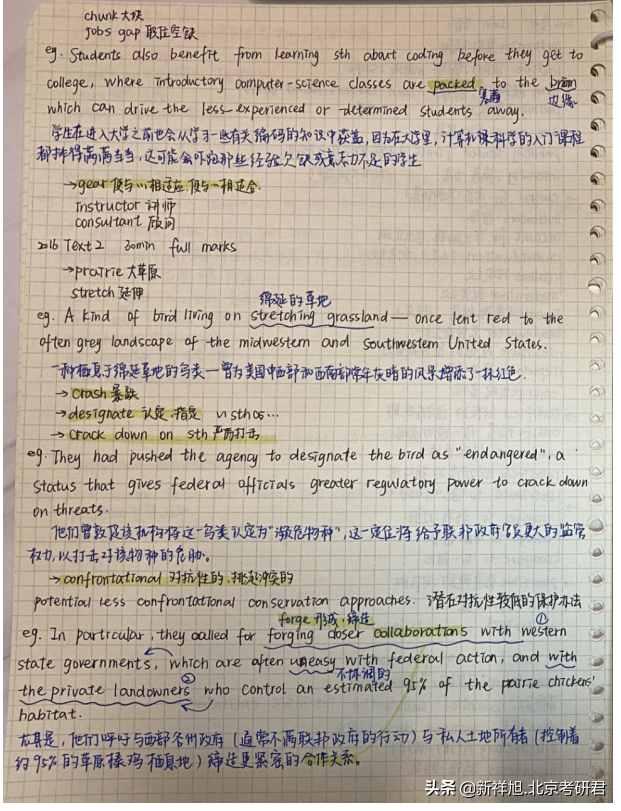 chunk 大块
jobs gap 职位空缺
eg. Students also benefit from learning sth about coding before they get to
college, where introductory computer-science classes are packed to the brim
塞满 边缘
which can drive the less-experienced or -determined students away.
学生在进入大学之前也会从学习一些有关编码的知识中获益,因为在大学里,计算机课科学的入门课程
都排得满满当当,这可能会吓跑那些经验欠缺或意志力不足的学生
→gear 使与…相适应,使与…相适合
instructor 讲师
consultant 顾问
2016 Text 2 30min full marks
→prairie 大草原
stretch 延伸
绵延的草地
eg. A kind of bird living on stretching grassland — once lent red to the
often grey landscape of the midwestern and southwestern United States.
一种栖息于绵延草地的鸟类一曾为美国中西部和西南部常年灰暗的风景增添了一抹红色.
→ crash 暴跌
→ designate 认定,指定 n sth as…
→ crack down on sth 严厉打击
eg. They had pushed the agency to designate the bird as "endangered", a
status that gives federal officials greater regulatory power to crack down
on threats.
他们曾敦促该机构将这一鸟类认定为"濒危物种",这一定位将给予联邦政府官员更大的监管
权力,以打击对该物种的危胁。
→ confrontational 对抗性的,挑起冲突的
potential less confrontational conservation approaches. 潜在对抗性较低的保护办法
forge 形成,缔造
eg. In particular, they called for forging closer collaborations with western ①
state governments, which are often uneasy with federal action, and with
② 不协调的
the private landowners who control an estimated 95% of the prairie chickens'
habitat.
尤其是,他们呼吁与西部各州政府(通常不满联邦政府的行动)与私人土地所有者(控制着
约95%的草原榛鸡栖息地)缔造更紧密的合作关系。
头条 @新祥旭.北京考研君